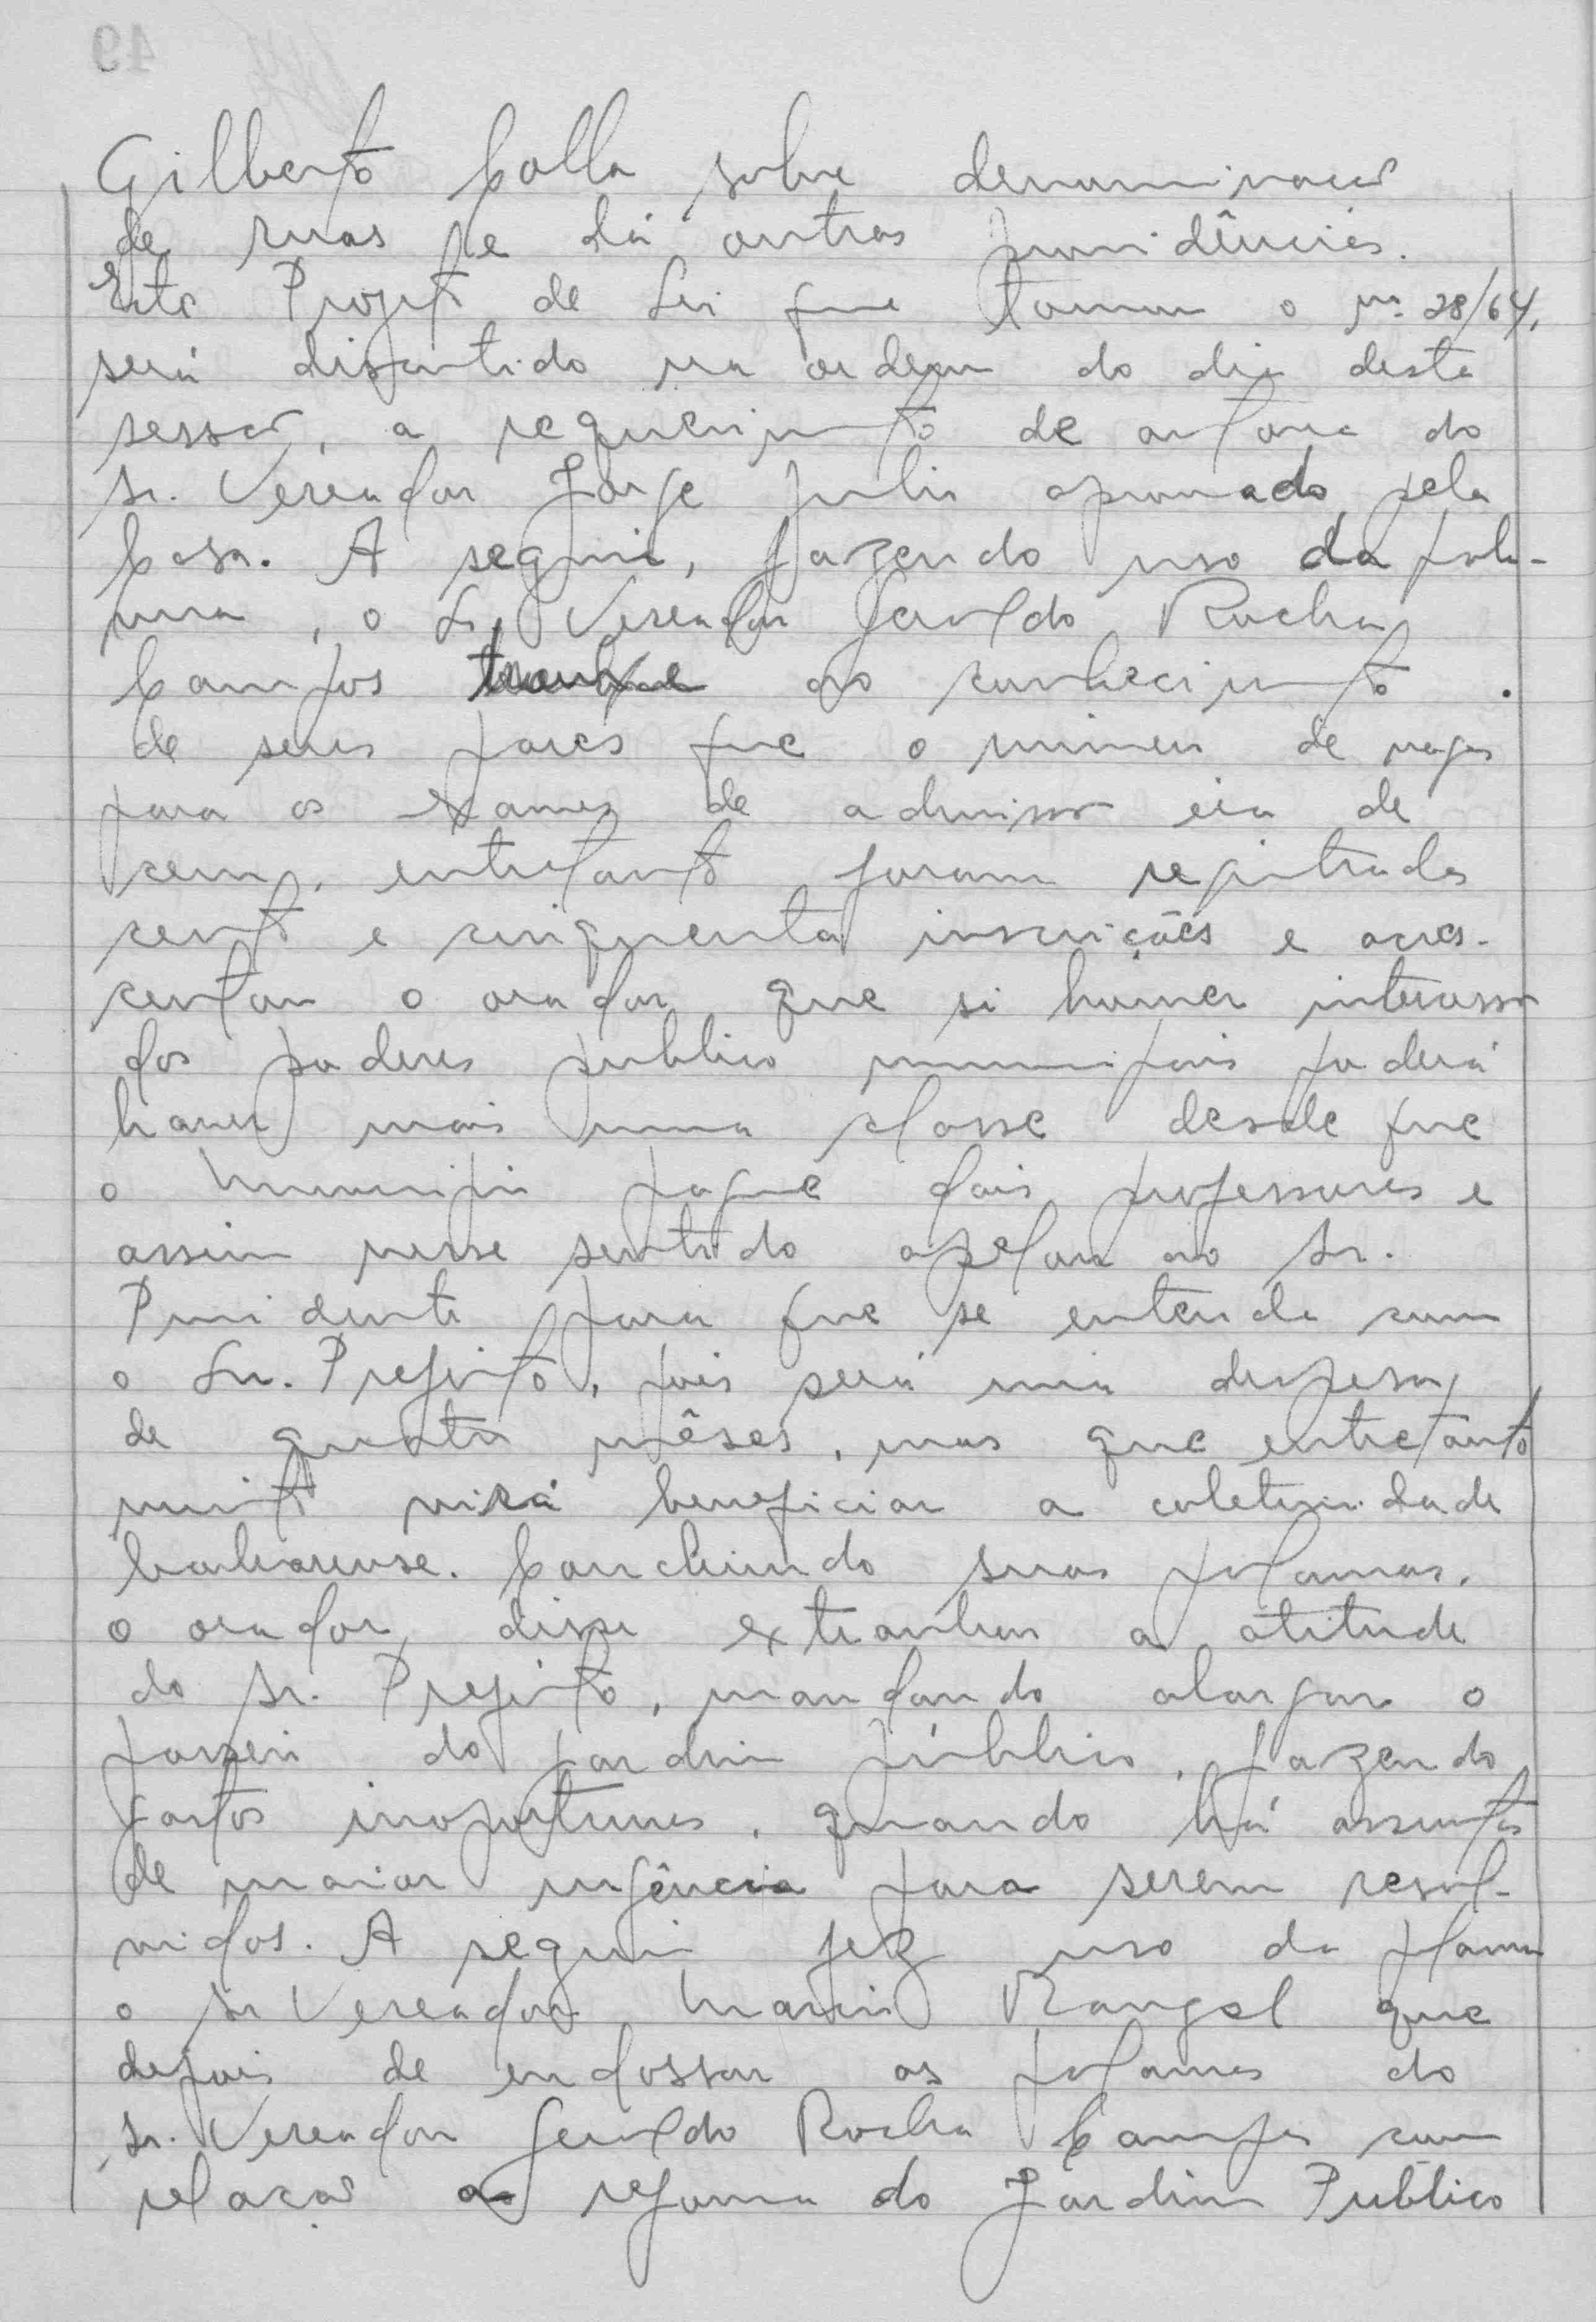 Gilberto Colla sobre denominação
de ruas e dá outras providências.
Este Projeto de Lei que tomou o nº 28/64,
será discutido na ordem do dia desta
sessão, a requerimento de autoria do
Sr. Vereador Jorge Julio aprovado pela
Casa. A seguir, fazendo uso da pala-
vra, o Sr. Vereador Geraldo Rocha
Campos trouxe ao conhecimento
de seus pares que o número de vagas
para os exames de admissão era de
cem, entretanto foram registradas
cento e cinquenta inscrições e acres-
centou o orador que si houver interesse
dos poderes publico municipais poderá
haver mais uma classe desde que
o Municipio pague dois professores e
assim nesse sentido apelou ao Sr.
Presidente para que se entenda com
o Sr. Prefeito, pois será uma despesa
de quatro mêses, mas que entretanto
muito virá beneficiar a coletividade
barbarense. Concluindo suas palavras,
o orador, disse extranhar a atitude
do Sr. Prefeito, mandando alargar o
passeio do jardim público, fazendo
gastos inoportunos, quando há assuntos
de maior urgência para serem resol-
vidos. A seguir fez uso da palavra
o Sr Vereador Mario Rangel que
depois de endossar as palavras do
Sr. Vereador Geraldo Rocha Campos com
relação a reforma do Jardim Publico